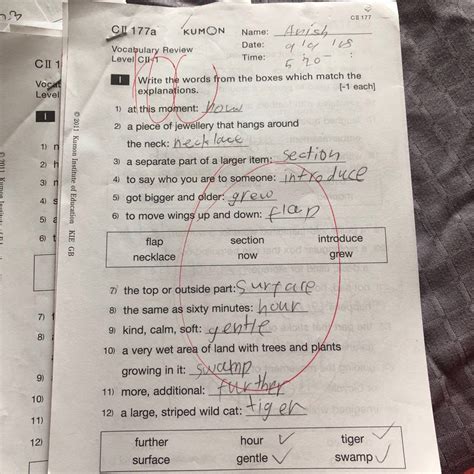 CII 177
CII 177a KUMON Name: Anish
Vocabulary Review Date:
Level CII-1 Time:
1 Write the words from the boxes which match the
explanations. [-1 each]
1) at this moment: now
2) a piece of jewellery that hangs around
the neck: necklace
3) a separate part of a larger item: section
4) to say who you are to someone: introduce
5) got bigger and older: grew
6) to move wings up and down: flap
flap section introduce
necklace now grew
7) the top or outside part: surface
8) the same as sixty minutes: hour
9) kind, calm, soft: gentle
10) a very wet area of land with trees and plants
growing in it: swamp
11) more, additional: further
12) a large, striped wild cat: tiger
further hour tiger
surface gentle swamp
© 2011 Kumon Institute of Education KIE GB
CII 1
Level
1
1)
2)
3)
4)
5)
6)
7)
8)
9)
10)
11)
12)